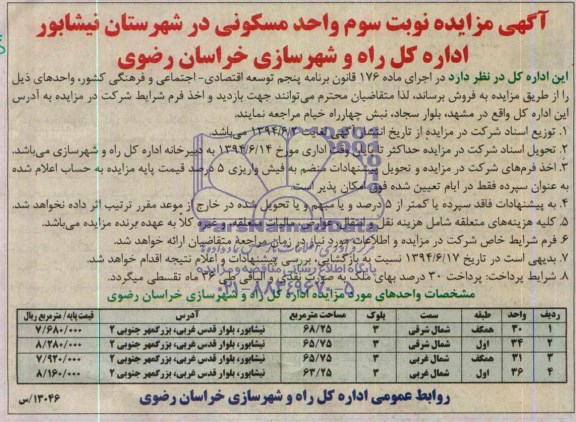 آگهی مزایده نوبت سوم واحد مسکونی در شهرستان نیشابور
اداره کل راه و شهرسازی خراسان رضوی
این اداره کل در نظر دارد در اجرای ماده ۱۷۶ قانون برنامه پنجم توسعه اقتصادی- اجتماعی و فرهنگی کشور، واحدهای ذیل
را از طریق مزایده به فروش برساند، لذا متقاضیان محترم می‌توانند جهت بازدید و اخذ فرم شرایط شرکت در مزایده به آدرس
این اداره کل واقع در مشهد، بلوار سجاد، نبش چهارراه خیام مراجعه نمایند.
۱. توزیع اسناد شرکت در مزایده از تاریخ انتشار آگهی لغایت ۱۳۹۴/۶/۳ می‌باشد.
۲. تحویل اسناد شرکت در مزایده حداکثر تا پایان وقت اداری مورخ ۱۳۹۴/۶/۱۴ به دبیرخانه اداره کل راه و شهرسازی می‌باشد.
۳. اخذ فرم‌های شرکت در مزایده و تحویل پیشنهادات منضم به فیش واریزی ۵ درصد قیمت پایه مزایده به حساب اعلام شده
به عنوان سپرده فقط در ایام تعیین شده فوق امکان پذیر است.
۴. به پیشنهادات فاقد سپرده یا کمتر از ۵ درصد و یا مبهم و یا تحویل شده در خارج از موعد مقرر ترتیب اثر داده نخواهد شد.
۵. کلیه هزینه‌های متعلقه شامل هزینه نقل و انتقال، مالیات متعلقه و غیره کلاً به عهده برنده مزایده می‌باشد.
۶. فرم شرایط خاص شرکت در مزایده و اطلاعات مورد نیاز در زمان مراجعه متقاضیان ارائه خواهد شد.
۷. بدیهی است در تاریخ ۱۳۹۴/۶/۱۷ نسبت به بازگشایی، بررسی پیشنهادات و اعلام نتیجه اقدام خواهد شد.
۸. شرایط پرداخت: پرداخت ۳۰ درصد بهای ملک به صورت نقدی و الباقی طی ۳۶ ماه تقسیطی میگردد.
ParsNamadData
پایگاه اطلاع رسانی مناقصه و مزایده
۰۲۱-۸۸۳۴۹۶۷۰-۵
مشخصات واحدهای مورد مزایده اداره کل راه و شهرسازی خراسان رضوی
ردیف واحد طبقه سمت بلوک مساحت مترمربع آدرس قیمت پایه/ مترمربع ریال
۱ ۳۰ همکف شمال شرقی ۳ ۶۸/۲۵ نیشابور، بلوار قدس غربی، بزرگمهر جنوبی ۲ ۷/۶۸۰/۰۰۰
۲ ۳۴ اول شمال شرقی ۳ ۶۵/۷۵ نیشابور، بلوار قدس غربی، بزرگمهر جنوبی ۲ ۸/۲۸۰/۰۰۰
۳ ۳۱ همکف شمال غربی ۳ ۶۵/۷۵ نیشابور، بلوار قدس غربی، بزرگمهر جنوبی ۲ ۷/۹۲۰/۰۰۰
۴ ۳۶ اول شمال غربی ۳ ۶۳/۲۵ نیشابور، بلوار قدس غربی، بزرگمهر جنوبی ۲ ۸/۱۶۰/۰۰۰
روابط عمومی اداره کل راه و شهرسازی خراسان رضوی
۱۳۰۴۶/س